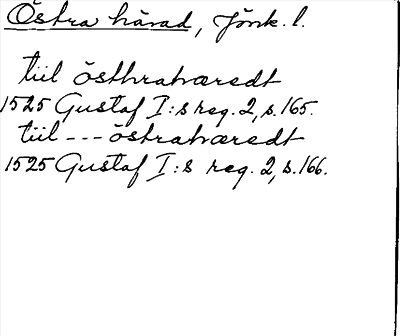 Östra härad, Jönk. l.
tiil östhrahæredt
1525 Gustaf I:s reg. 2, s. 165.
tiil --- östrahæredt
1525 Gustaf I:s reg. 2, s. 166.